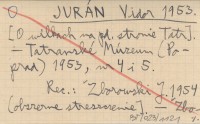 JURÁN Vidor 1953.
[O willach na pd. stronie Tatr].
— Tatranské Múzeum (Po-
prad) 1953, nr 4 i 5.
Rec.: "Zborowski J. 1954
(obszerne streszczenie). — Zbo-